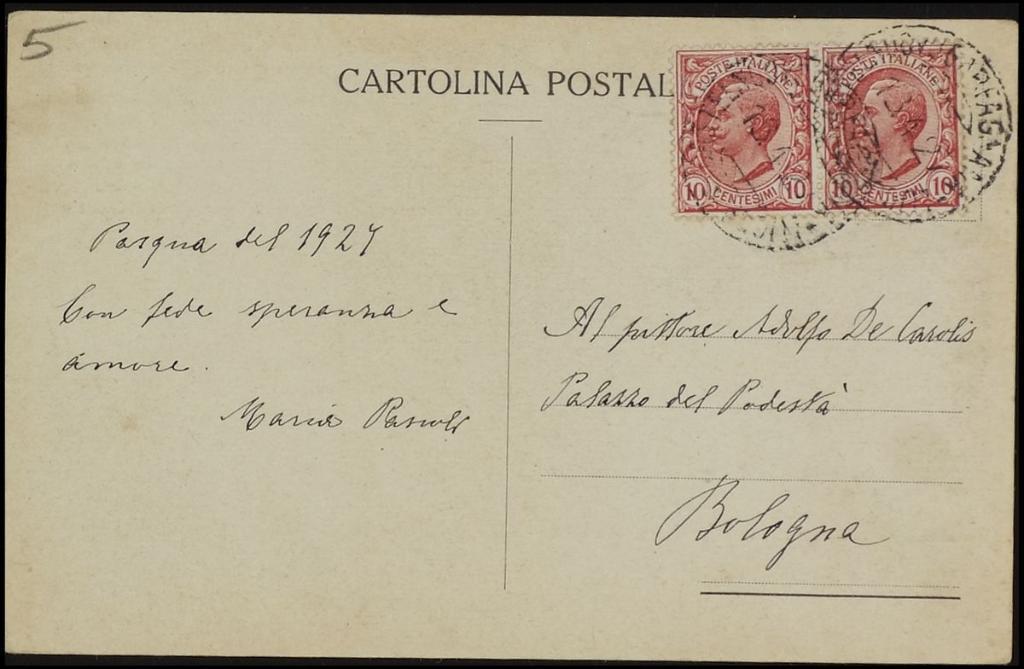 5
CARTOLINA POSTAL
POSTE ITALIANE
10 CENTESIMI 10
POSTE ITALIANE
10 CENTESIMI 10
Pasqua del 1927
Con fede speranza e
amore.
Maria Pascoli
Al pittore Adolfo De Carolis
Palazzo del Podestà
Bologna